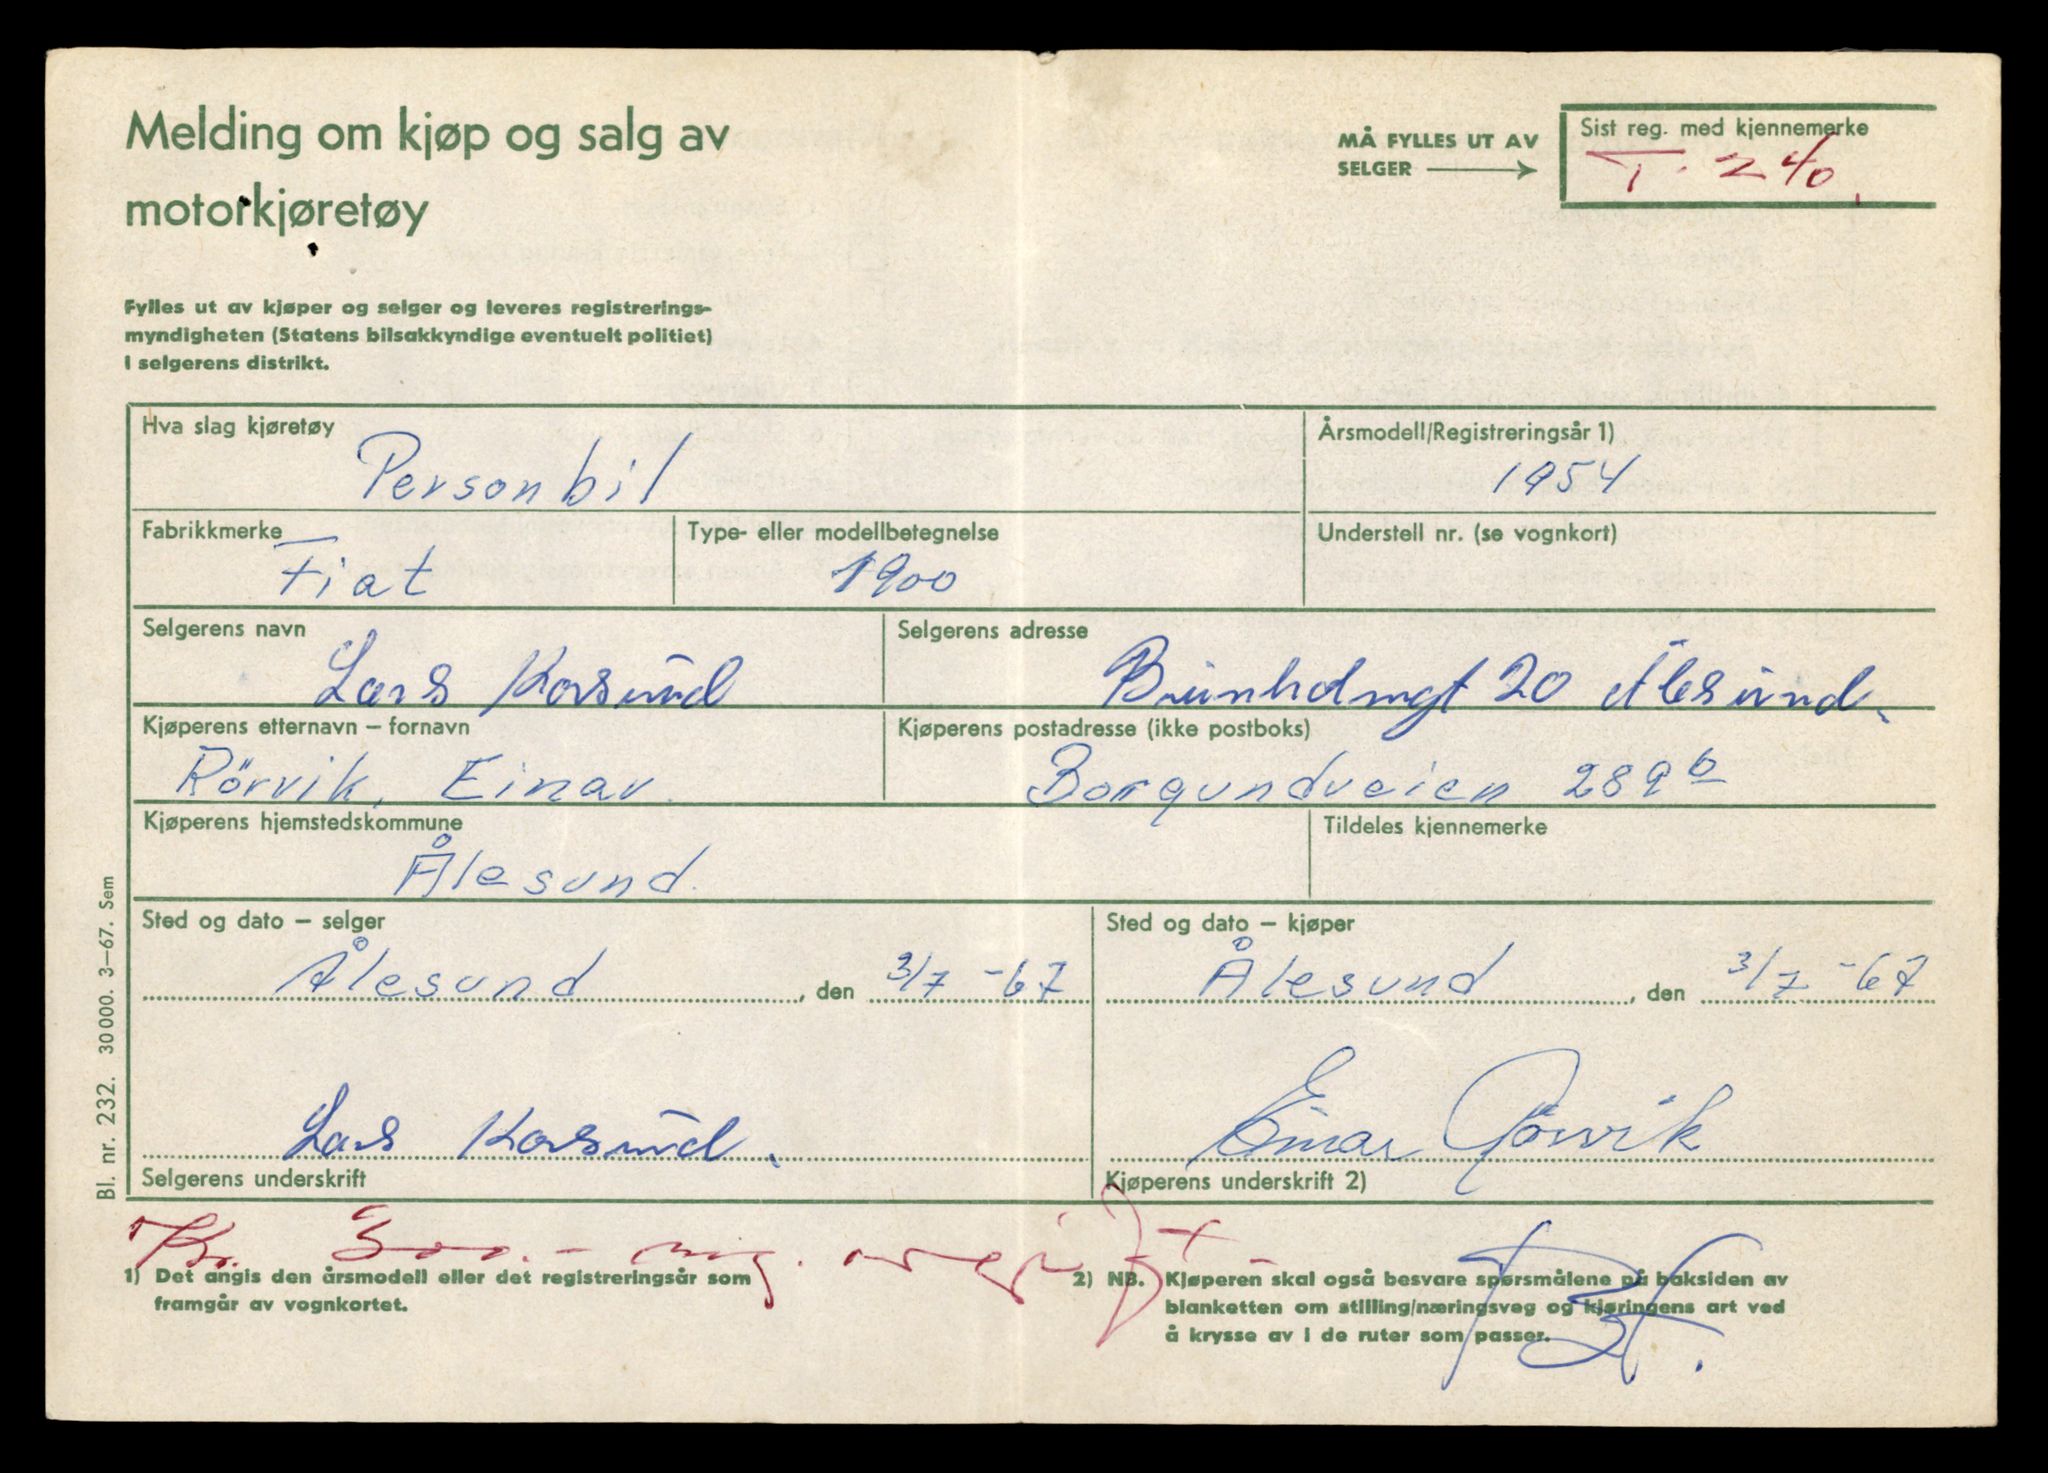 Melding om kjøp og salg av
motorkjøretøy
MÅ FYLLES UT AV
SELGER
Sist reg. med kjennemerke
T. 240
Fylles ut av kjøper og selger og leveres registrerings-
myndigheten (Statens bilsakkyndige eventuelt politiet)
i selgerens distrikt.
Hva slag kjøretøy
Personbil
Årsmodell/Registreringsår 1)
1954
Fabrikkmerke
Fiat
Type- eller modellbetegnelse
1900
Understell nr. (se vognkort)
Selgerens navn
Lars Korsund
Selgerens adresse
Brunholmgt 20 Ålesund.
Kjøperens etternavn – fornavn
Rörvik, Einar.
Kjøperens postadresse (ikke postboks)
Borgundveien 289 b
Kjøperens hjemstedskommune
Ålesund.
Tildeles kjennemerke
Sted og dato – selger
Ålesund, den 3/7 -67
Sted og dato – kjøper
Ålesund, den 3/7 -67
Lars Korsund.
Selgerens underskrift
Einar Rörvik
Kjøperens underskrift 2)
Kr.
1) Det angis den årsmodell eller det registreringsår som
framgår av vognkortet.
2) NB. Kjøperen skal også besvare spørsmålene på baksiden av
blanketten om stilling/næringsveg og kjøringens art ved
å krysse av i de ruter som passer.
Bl. nr. 232. 30 000. 3–67. Sem